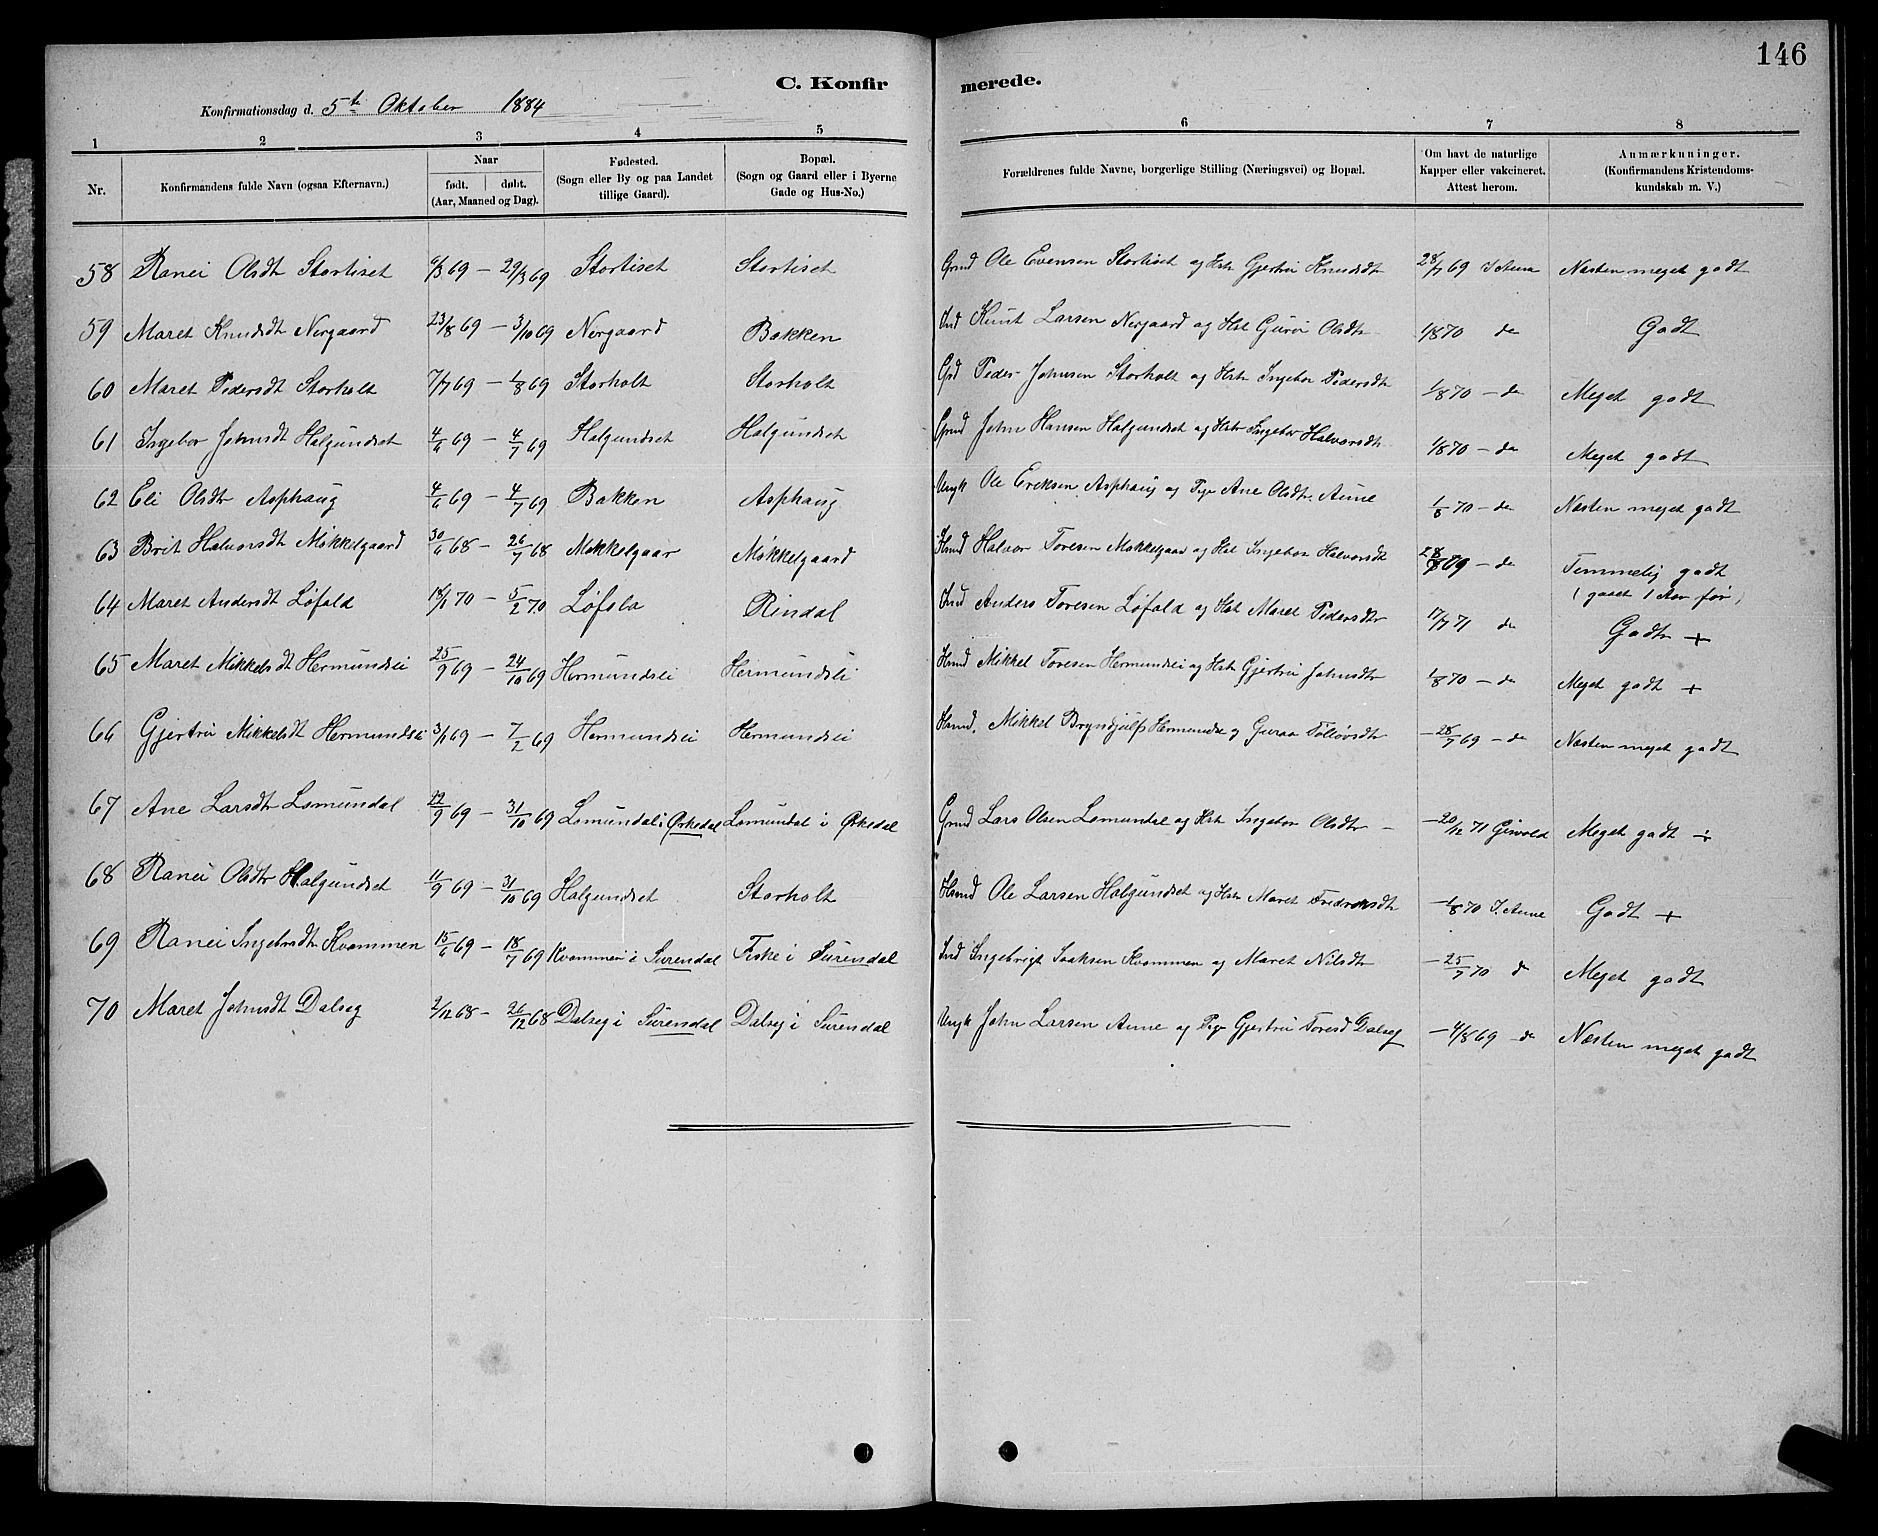 146
C. Konfirmerede.
Konfirmationsdag d. 5te Oktober 1884
1 2 3 4 5 6 7 8
Nr. | Konfirmandens fulde Navn (ogsaa Efternavn.) | Naar født. døbt. (Aar, Maaned og Dag). | Fødested. (Sogn eller By og paa Landet tillige Gaard). | Bopæl. (Sogn og Gaard eller i Byerne Gade og Hus-No.) | Forældrenes fulde Navne, borgerlige Stilling (Næringsvei) og Bopæl. | Om havt de naturlige Kapper eller vakcineret. Attest herom. | Anmærkninger. (Konfirmandens Kristendomskundskab m. V.)
58 Ranei Olsdt Stortiset 6/3 69 – 29/3 69 Stortiset Stortiset Grnd Ole Evensen Stortiset og Hst Gjertru Knudsdt 28/7 69 I Aune Næsten meget godt
59 Maret Knudsdt Nergaard 23/8 69 – 3/10 69 Nergaard Bakken Ind Knut Larsen Nergaard og Hst Guroi Olsdtr 1/8 70 do Godt
60 Maret Pedersdt Storholt 7/7 69 – 1/8 69 Storholt Storholt Grd Peder Johnsen Storholt og Hstr Ingebor Pedersdtr 1/8 70 – do Meget godt
61 Ingebor Johnsdt Halgundset 4/6 69 – 4/7 69 Halgundset Halgundset Grnd John Hansen Halgundset og Hstr Ingebor Halvorsdt 1/8 70 – do Meget godt
62 Eli Olsdtr Asphaug 4/6 69 – 4/7 69 Bakken Asphaug Ungk Ole Eriksen Asphaug og Pige Ane Olsdtr Aune 1/8 70 – do Næsten meget godt
63 Brit Halvorsdt Mikkelgaard 30/6 68 – 26/7 68 Mikkelgaar Mikkelgaard Hsmd Halvor Toresen Mikkelgaar og Hst Ingebor Halvorsdt 28/7 69 – do Temmelig godt
(gaaet 1 Aar før)
64 Maret Andersdt Løfald 18/1 70 – 5/2 70 Løfala Rindal Ind Anders Toresen Løfald og Hst Maret Pedersdtr 17/7 71 do Godt +
65 Maret Mikkelsdt Hermundslei 25/9 69 – 24/10 69 Hermundslei Hermundsli Hsmd Mikkel Toresen Hermundslei og Hst Gjertru Johnsdtr 1/8 70 – do Meget godt +
66 Gjertru Mikkelsdt Hermundsli 3/1 69 – 7/2 69 Hermundslei Hermundslei Hsmd. Mikkel Brynhjulfs Hermundsl og Guroa Tollovsdtr – 28/7 69 – do Næsten meget godt
67 Ane Larsdtr Lomundal 22/9 69 – 31/10 69 Lomundal i Ørkedal Lomundal i Ørkedal Grnd Lars Olsen Lomundal og Hst Ingebor Olsdtr – – 20/12 71 Gisvold Meget godt +
68 Ranei Olsdtr Halgundset 11/9 69 – 31/10 69 Halgundset Storholt Hsmd Ole Larsen Halgundset og Hstr Maret Fredriksdtr – 1/8 70 I. Aune Godt +
69 Ranei Ingebrdtr Kvammen 15/6 69 – 18/7 69 Kvammen i Surendal Fiske i Surendal Ind Ingebrigt Isaksen Kvammen og Maret Nilsdtr – 25/7 70 d Meget godt
70 Maret Johnsdt Dalseg 2/12 68 – 26/12 68 Dalseg i Surendal Dalseg i Surendal Ungk John Larsen Aune og Pige Gjertru Toresd Dalseg – 4/8 69 – do Næsten meget godt